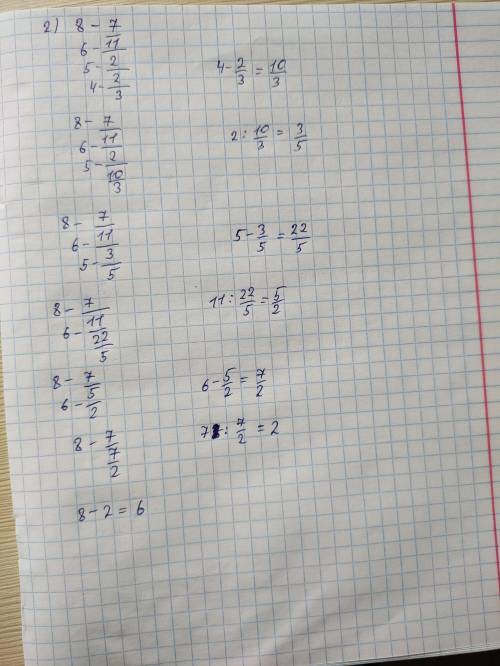 2) 8 - 7
6 - 11
5 - 2
4 - 2
3
4 - 2/3 = 10/3
8 - 7
6 - 11
5 - 2
10
3
2 : 10/3 = 3/5
8 - 7
6 - 11
5 - 3
5
5 - 3/5 = 22/5
8 - 7
6 - 11
22
5
11 : 22/5 = 5/2
8 - 7
6 - 5
2
6 - 5/2 = 7/2
8 - 7
7
2
7 : 7/2 = 2
8 - 2 = 6